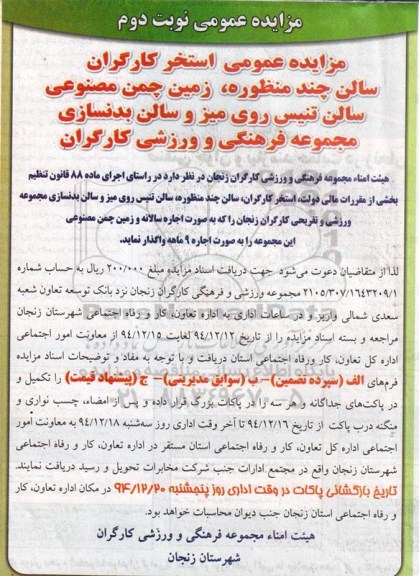 مزایده عمومی نوبت دوم
مزایده عمومی استخر کارگران
سالن چند منظوره، زمین چمن مصنوعی
سالن تنیس روی میز و سالن بدنسازی
مجموعه فرهنگی و ورزشی کارگران
هیئت امناء مجموعه فرهنگی و ورزشی کارگران زنجان در نظر دارد در راستای اجرای ماده ۸۸ قانون تنظیم
بخشی از مقررات مالی دولت، استخر کارگران، سالن چند منظوره، سالن تنیس روی میز و سالن بدنسازی مجموعه
ورزشی و تفریحی کارگران زنجان را که به صورت اجاره سالانه و زمین چمن مصنوعی
این مجموعه را به صورت اجاره ۹ ماهه واگذار نماید.
لذا از متقاضیان دعوت می‌شود جهت دریافت اسناد مزایده مبلغ ۲۰۰/۰۰۰ ریال به حساب شماره
۲۱۰۵/۳۰۷/۱۶۴۳۲۰۹/۱ مجموعه ورزشی و فرهنگی کارگران زنجان نزد بانک توسعه تعاون شعبه
سعدی شمالی واریز و در ساعات اداری به اداره تعاون، کار و رفاه اجتماعی شهرستان زنجان
مراجعه و بسته اسناد مزایده را از تاریخ ۹۴/۱۲/۱۲ لغایت ۹۴/۱۲/۱۵ از معاونت امور اجتماعی
اداره کل تعاون، کار ورفاه اجتماعی استان دریافت و با توجه به مفاد و توضیحات اسناد مزایده
فرم‌های الف (سپرده تضمین)– ب (سوابق مدیریتی)– ج (پیشنهاد قیمت) را تکمیل و
در پاکت‌های جداگانه و هر سه را در پاکات بزرگ قرار داده و پس از امضاء، چسب نواری و
منگنه درب پاکت از تاریخ ۹۴/۱۲/۱۶ تا آخر وقت اداری روز سه‌شنبه ۹۴/۱۲/۱۸ به معاونت امور
اجتماعی اداره کل تعاون، کار و رفاه اجتماعی استان مستقر در اداره تعاون، کار و رفاه اجتماعی
شهرستان زنجان واقع در مجتمع ادارات جنب شرکت مخابرات تحویل و رسید دریافت نمایند.
تاریخ بازگشائی پاکات در وقت اداری روز پنجشنبه ۹۴/۱۲/۲۰ در مکان اداره تعاون، کار
و رفاه اجتماعی استان زنجان جنب دیوان محاسبات خواهد بود.
هیئت امناء مجموعه فرهنگی و ورزشی کارگران
شهرستان زنجان